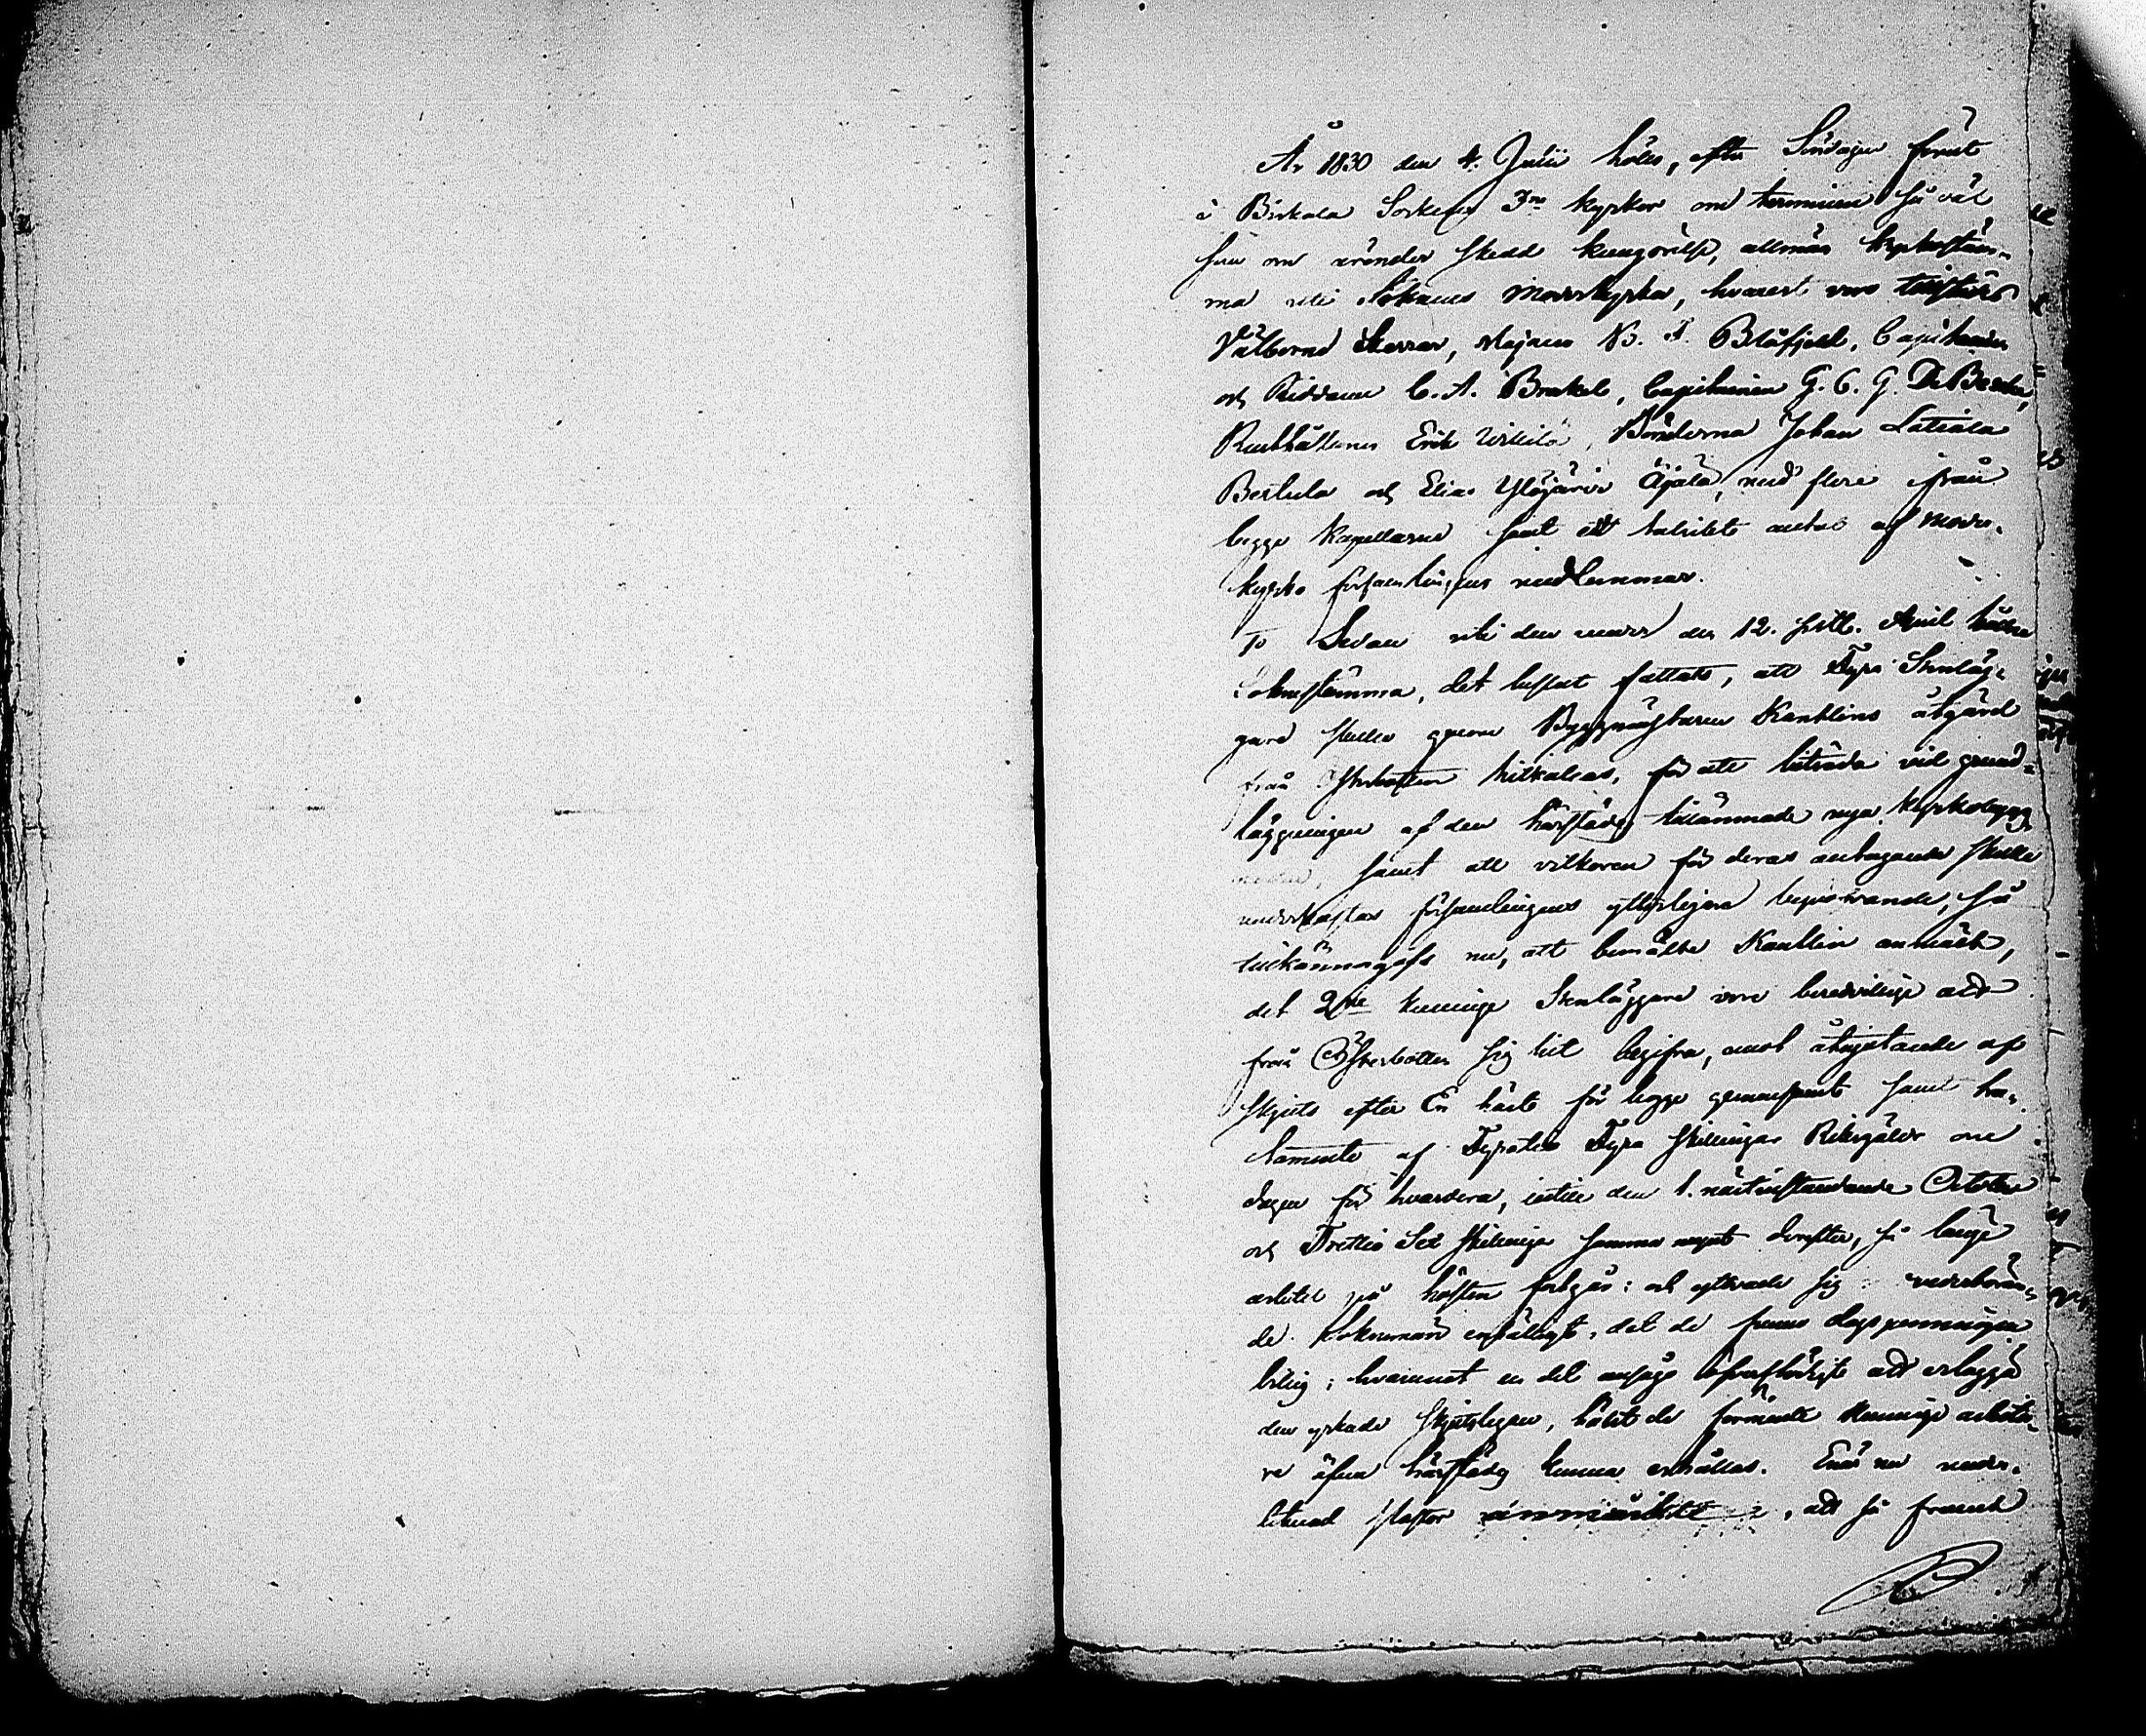 År 1830 den 4. Julii hölls, efter Söndagen förut
i Birkala Sockens 3ne kyrkor om terminen så väl
som om ärender skedd kungörelse, allmän kyrkostäm-
ma uti Soknens Moderkyrka, hvarest voro tillstädes
Välborne Herrar, Majoren B. A. Blåfjeld, Capitainen
och Riddaren C. A. Brakel, Capitainen G. C. G. De Besche,
Rusthållaren Erik Uikila, Bönderna Johan Latiala
Bertula och Elias Ylöjärvi Äijälä, med flere ifrån
begge Kapellerne samt ett talrikt antal af Moder-
kyrko församlingens medlemmar.
1o Sedan uti den under den 12. sistl. April hållne
Soknestämma, det beslut fattats, att Fyra Stenläg-
gare skulle genom Byggmästaren Kantlins åtgärd
från Österbotten hitkallas, för att biträda vid grund-
läggningen af den härstädes tillämnade nya kyrkobygg-
naden, samt att vilkoren för deras antagande skulle
underkastas församlingens ytterligare bepröfvande, så
tillkännagafs nu, att bemälte Kantlin anmält,
det 2ne kunnige Stenläggare vore beredvillige att
från Österbotten sig hit begifva, emot åtnjutande af
skjuts efter En häst för begge gemensamt samt tra-
ctamente af Fyratio Fyra skillingar Riksgälds om
dagen för hvardera, intill den 1. nästinstundande October
och Trettio Sex skillingar samma mynt derefter, så länge
arbetet på hösten fortgår: och yttrade sig vederböran-
de Soknemän enhälligt, det de funno dagspenningen
billig; hvaremot en del ansågo öfverflödigt att erlägga
den yrkade skjutslegan, hälst de förmente kunnige arbeta-
re äfven härstädes kunna erhållas. Enär nu under-
tecknad Pastor anmärkte, att så framt